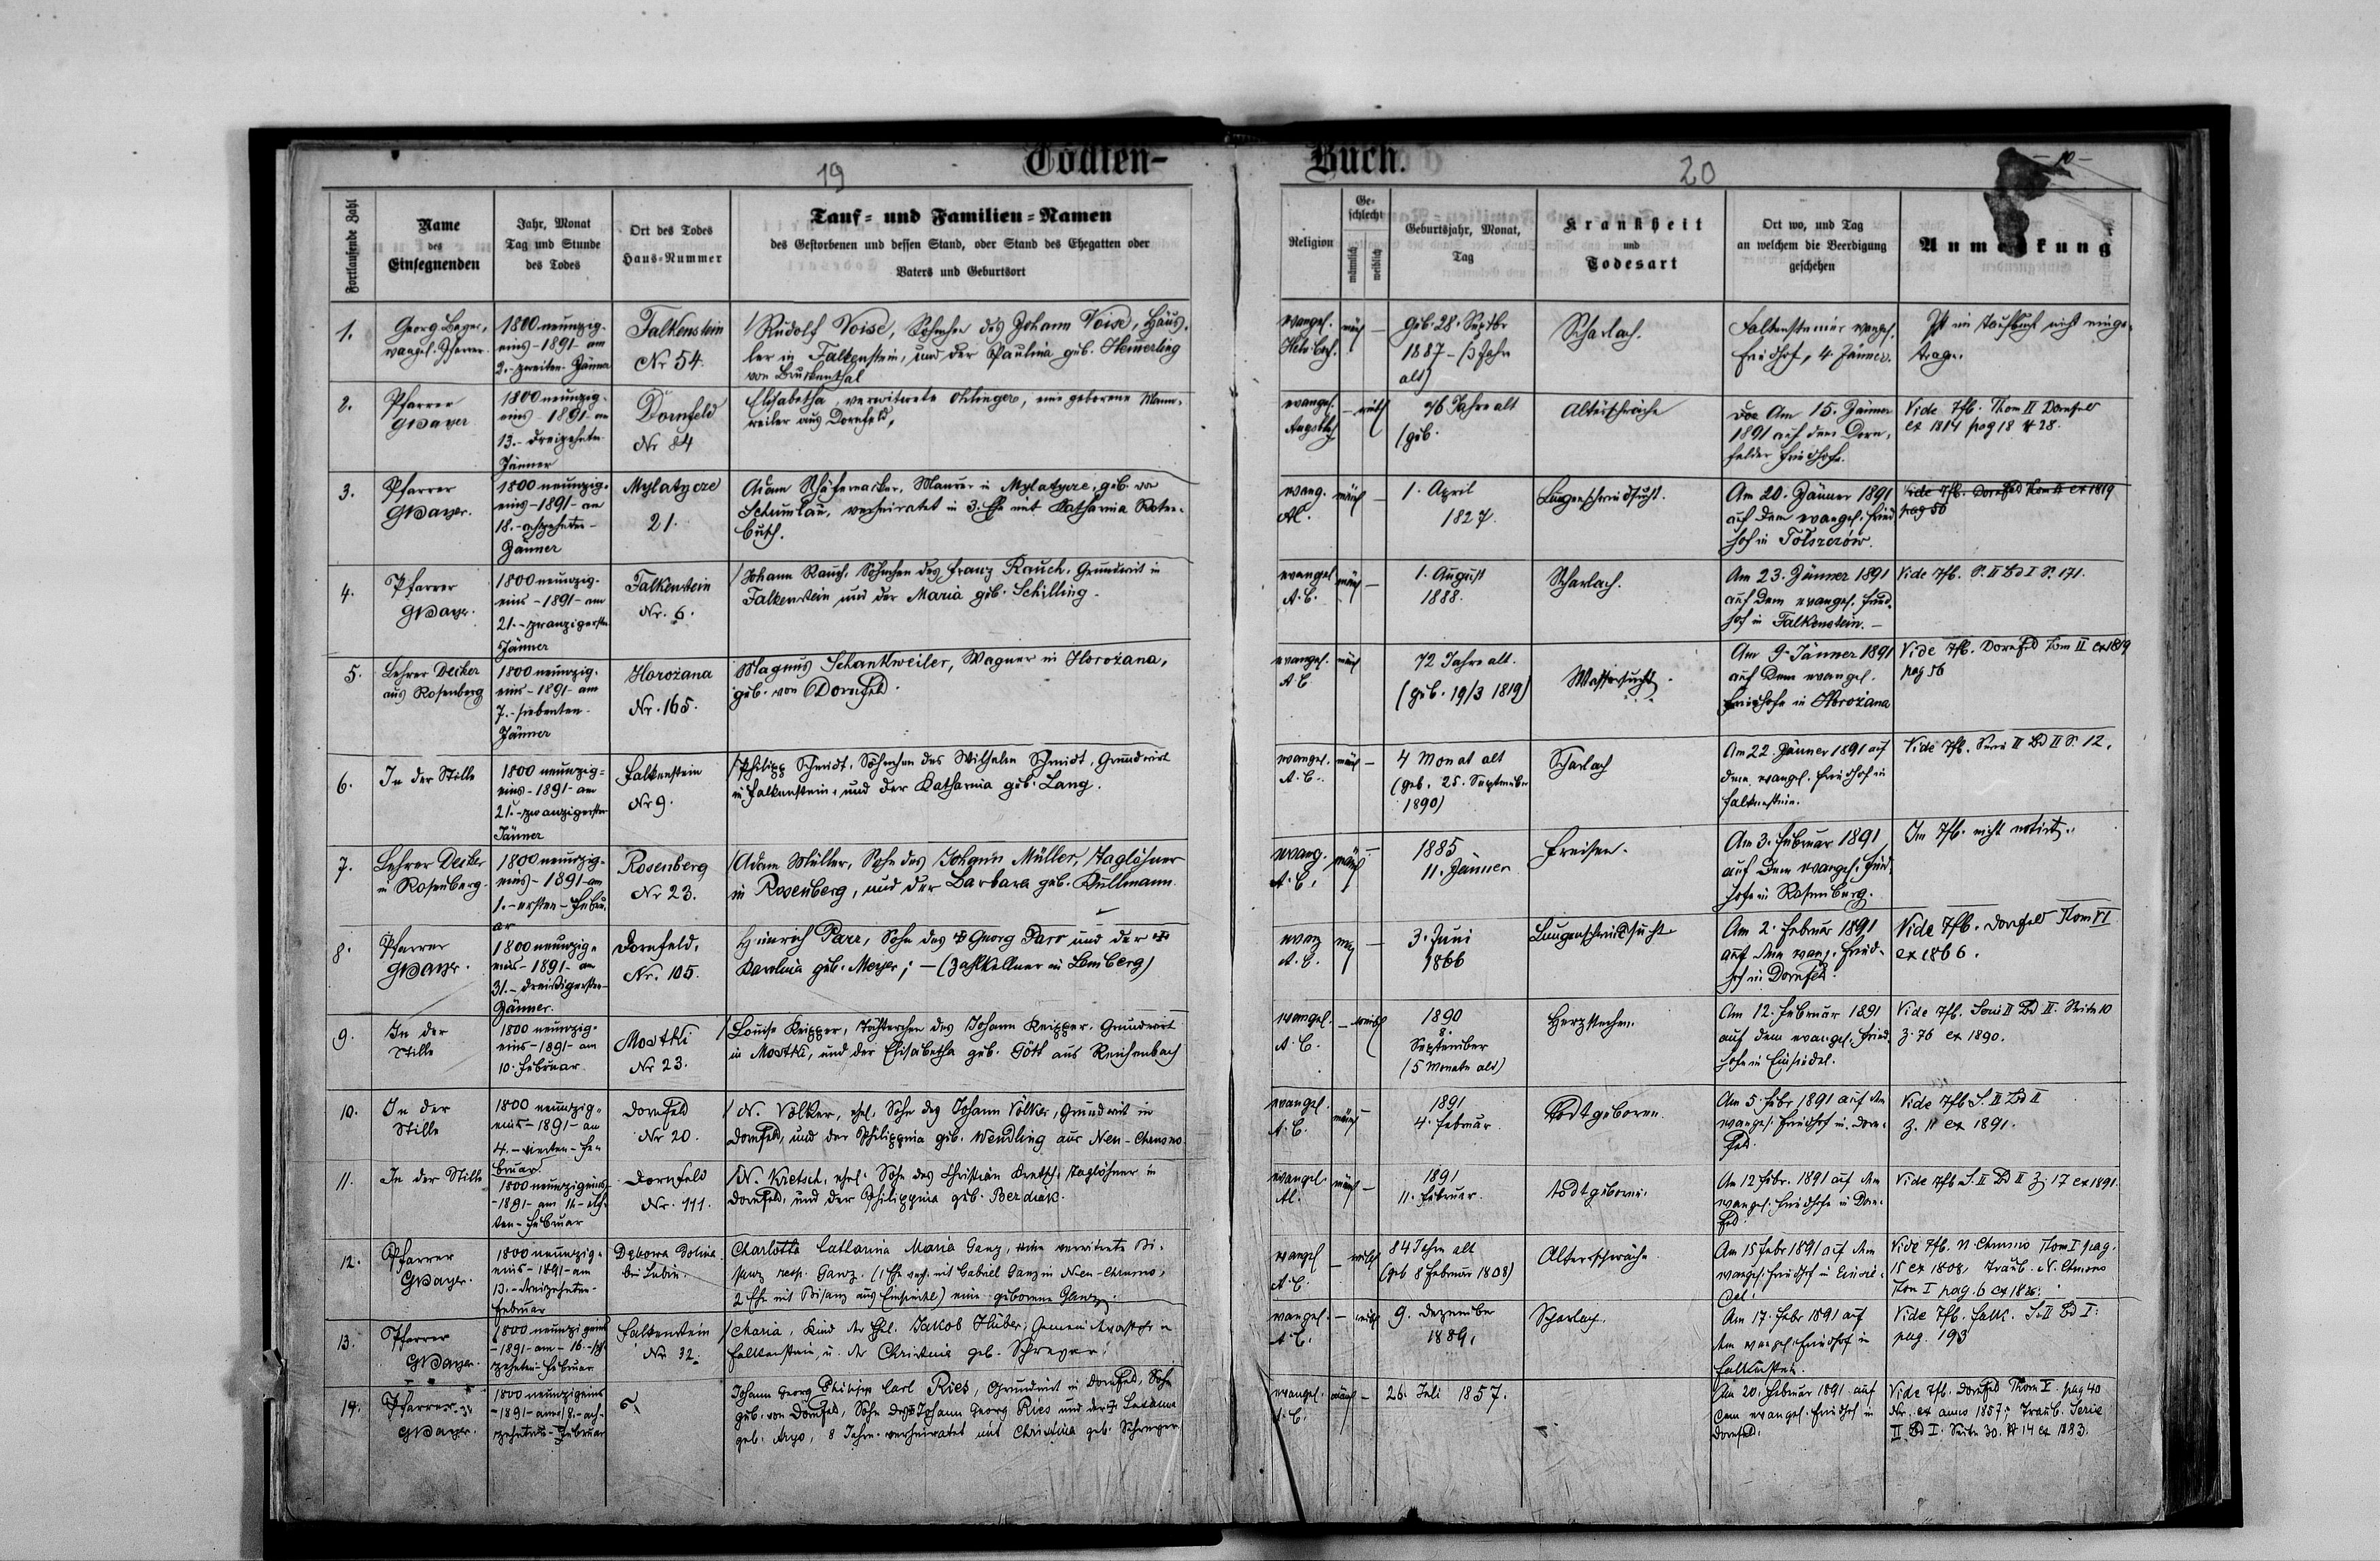 Todten-
Buch.
19
20
10
Fortlaufende Zahl
Name
des
Einsegnenden
Jahr, Monat
Tag und Stunde
des Todes
Ort des Todes
Haus-Nummer
Tauf- und Familien-Namen
des Gestorbenen und dessen Stand, oder Stand des Ehegatten oder
Vaters und Geburtsort
Religion
Ge-
schlecht
männlich
weiblich
Geburtsjahr, Monat,
Tag
Krankheit
und
Todesart
Ort wo, und Tag
an welchem die Beerdigung
geschehen
Anmerkung
1.
Georg
evangel. Pfarrer.
1800 neunzig-
eins - 1891 - am
2. - zweiten Jänner
Falkenstein
Nr 54.
Rudolf Voise, Söhnchen des Johann Voise, Häus-
ler in Falkenstein, und der Paulina geb.
von Bruckenthal
evangel.
männl –
geb. 28. Septbr
1887 - (3 Jahr
alt)
Scharlach.
Falkensteiner evangel.
Friedhof, 4. Jänner.
Ist im Taufbuch nicht einge-
tragen.
2.
Pfarrer
1800 neunzig-
eins - 1891 - am
13. - dreizehnten
Jänner
Dornfeld
Nr 84
Elisabetha, verwitwete Ohlinger, eine geborene Mann-
weiler aus Dornfeld,
evangel.
Augsb.
– weibl
76 Jahre alt
(geb.
Altersschwäche
Am 15. Jänner
1891 auf dem Dorn-
felder Friedhofe.
Vide Tfb. Thom II Dornfeld
ex 1814 pag 18 28.
3.
Pfarrer
1800 neunzig-
eins - 1891 - am
18. - achtzehnten -
Jänner
Mylatycze
21.
Adam, Maurer in Mylatycze, geb. von
Schumlau, verheiratet in 3. Ehe mit Katharina Roten-
buth.
evang.
männl –
1. April
1827.
Lungenschwindsucht.
Am 20. Jänner 1891
auf dem evangel. Fried
hof in Tołszczów.
Vide Tfb. Dornfeld Tom II ex 1819
pag 56
4.
Pfarrer
1800 neunzig-
eins - 1891 - am
21. - zwanzigersten
Jänner
Falkenstein
Nr. 6.
Johann Rauch, Söhnchen des Franz Rauch, Grundwirt in
Falkenstein und der Maria geb. Schilling.
evangel
A. C.
männl –
1. August
1888.
Scharlach.
Am 23. Jänner 1891
auf dem evangel. Fried-
hof in Falkenstein. –
Vide Tfb. S. II Bd I S. 171.
5.
Lehrer Decker
aus Rosenberg
1800 neunzig-
eins - 1891 - am
7. - siebenten -
Jänner
Horożana
Nr. 165.
Magnus Schankweiler, Wagner in Horożana,
geb. von Dornfeld.
evangel.
A. C
männl
72 Jahre alt.
(geb. 19/3 1819)
Wassersucht.
Am 9. Jänner 1891
auf dem evangel.
Friedhofe in Horożana
Vide Tfb. Dornfeld Tom II ex 1819
pag 56
6.
In der Stille
1800 neunzig-
eins - 1891 - am
21. - zwanzigersten
Jänner
Falkenstein
Nr 9.
Philipp Schmidt, Söhnchen des Wilhelm Schmidt, Grundwirt
in Falkenstein, und der Katharina geb. Lang.
evangel.
A. C.
männl –
4 Monat alt
(geb. 25. September
1890)
Scharlach
Am 22. Jänner 1891 auf
dem evangel. Friedhof in
Falkenstein.
Vide Tfb. Serie II Bd II S. 12.
7.
Lehrer Decker
in Rosenberg.
1800 neunzig-
eins - 1891 - am
1. - ersten - Febru-
ar
Rosenberg
Nr 23.
Adam Müller, Sohn des Johann Müller, Taglöhner
in Rosenberg, und der Barbara geb. Kullmann
evang.
A. C.
männl –
1885
11. Jänner
Freisen.
Am 3. Februar 1891
auf dem evangel. Fried
hofe in Rosenberg.
Im Tfb. nicht notirt.
8.
Pfarrer
1800 neunzig-
eins - 1891 - am
31. - dreißigersten -
Jänner.
Dornfeld.
Nr. 105.
Heinrich Parr, Sohn des Georg Parr und der
Karolina geb. Meyer; – (Zahlkellner in Lemberg)
evang
A. C.
–
3. Juni
1866
Lungenschwindsucht.
Am 2. Februar 1891
auf dem evang. Fried-
hof in Dornfeld.
Vide Tfb. Dornfeld Thom VI
ex 1866.
9.
In der
Stille
1800 neunzig-
eins - 1891 - am
10. Februar
Mostki
Nr 23.
Louise Knipper, Töchterchen des Johann Knipper, Grundwirt
in Mostki, und der Elisabetha geb. Gött aus Reichenbach
evangel.
A. C.
– weibl
1890
8.
September
(5 Monate alt)
Am 12. Februar 1891
auf dem evangel. Fried
hofe in Einsiedel.
Vide Tfb. Serie II Bd II. Seite 10
z. 76 ex 1890.
10.
In der
Stille
1800 neunzig-
eins - 1891 - am
4. - vierten - Fe-
bruar.
Dornfeld
Nr 20.
N. Völker, ehel. Sohn des Johann Völker, Grundwirt in
Dornfeld, und der Philippina geb. Wendling aus Neu-Chrusno
evangel.
A. C.
männl
1891
4. Februar.
Todtgeboren.
Am 5. Febr 1891 auf dem
evangel. Friedhof in Dorn-
feld.
Vide Tfb S. II Bd II
z. 11 ex 1891.
11.
In der Stille
1800 neunzigeins
- 1891 - am 11. - elf-
ten - Februar
Dornfeld
Nr. 111.
N. Kretsch, ehel. Sohn des Christian Kretsch, Taglöhner in
Dornfeld, und der Philippina geb. Berdiak.
evangel.
männl –
1891
11. Februar.
todtgeboren.
Am 12 Febr. 1891 auf dem
evangel. Friedhofe in Dorn-
feld
Vide Tfb S. II Bd II z. 17 ex 1891.
12.
Pfarrer
1800 neunzig-
eins - 1891 - am
13. - dreizehnten -
Februar
Dąbowa Dolina
bei Lubin.
Charlotta Catharina Maria Ganz, eine verwitwete Bi-
sanz resp. Ganz. (1 Ehe mit Gabriel Ganz in Neu-Chrusno,
2 Ehe mit Bisanz aus Einsiedel) eine geborene Ganz.
evangel
A. C.
– weibl
84 Jahre alt
(geb 8 Februar 1808)
Altersschwäche.
Am 15 Febr 1891 auf dem
evangel. Friedhof in Einsie-
del.
Vide Tfb. N. Chrusno Thom I pag.
15 ex 1808, Traub. N. Chrusno
Thom I pag. 6 ex
13.
Pfarrer
1800 neunzigeins
- 1891 - am - 16. - sech-
zehnten - Februar
Falkenstein
Nr 32.
Maria, Kind der Ehel. Jakob Huber, Gemeindevorsteher in
Falkenstein, u. der Christina geb. Schreyer.
evangel.
A. C.
– weibl
9. Dezember
1889.
Scharlach.
Am 17. Febr 1891 auf
dem evangel. Friedhof in
Falkenstein.
Vide Tfb. Falk. S. II Bd I:
pag. 193
14.
Pfarrer
1800 neunzigeins
- 1891 - am 18. - acht-
zehnten - Februar
Johann Georg Philipp Carl Ries, Grundwirt in Dornfeld, Sohn
geb. von Dornfeld, Sohn des Johann Georg Ries und der
geb. 8 Jahre verheiratet mit Christina geb. Schreyer
evangel.
A. C.
männl –
26. Juli 1857.
Am 20. Februar 1891 auf
dem evangel. Friedhof in
Dornfeld.
Vide Tfb. Dornfeld Thom V. pag 40
Nr. ex anno 1857; Traub. Serie
II. Bd I. Seite 30. 14 ex 1883.